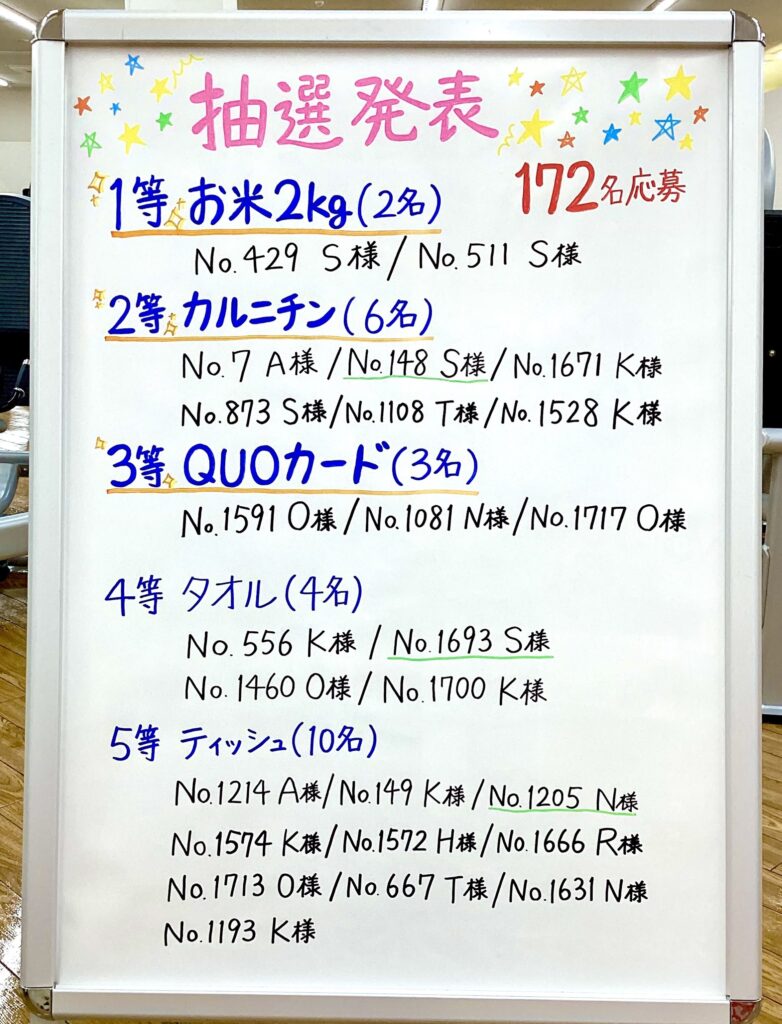 抽選発表
172名応募
1等 お米2kg(2名)
No.429 S様/No.511 S様
2等 カルニチン(6名)
No.7 A様/No.148 S様/No.1671 K様
No.873 S様/No.1108 T様/No.1528 K様
3等 QUOカード(3名)
No.1591 O様/No.1081 N様/No.1717 O様
4等 タオル(4名)
No.556 K様/No.1693 S様
No.1460 O様/No.1700 K様
5等 ティッシュ(10名)
No.1214 A様/No.149 K様/No.1205 N様
No.1574 K様/No.1572 H様/No.1666 R様
No.1713 O様/No.667 T様/No.1631 N様
No.1193 K様